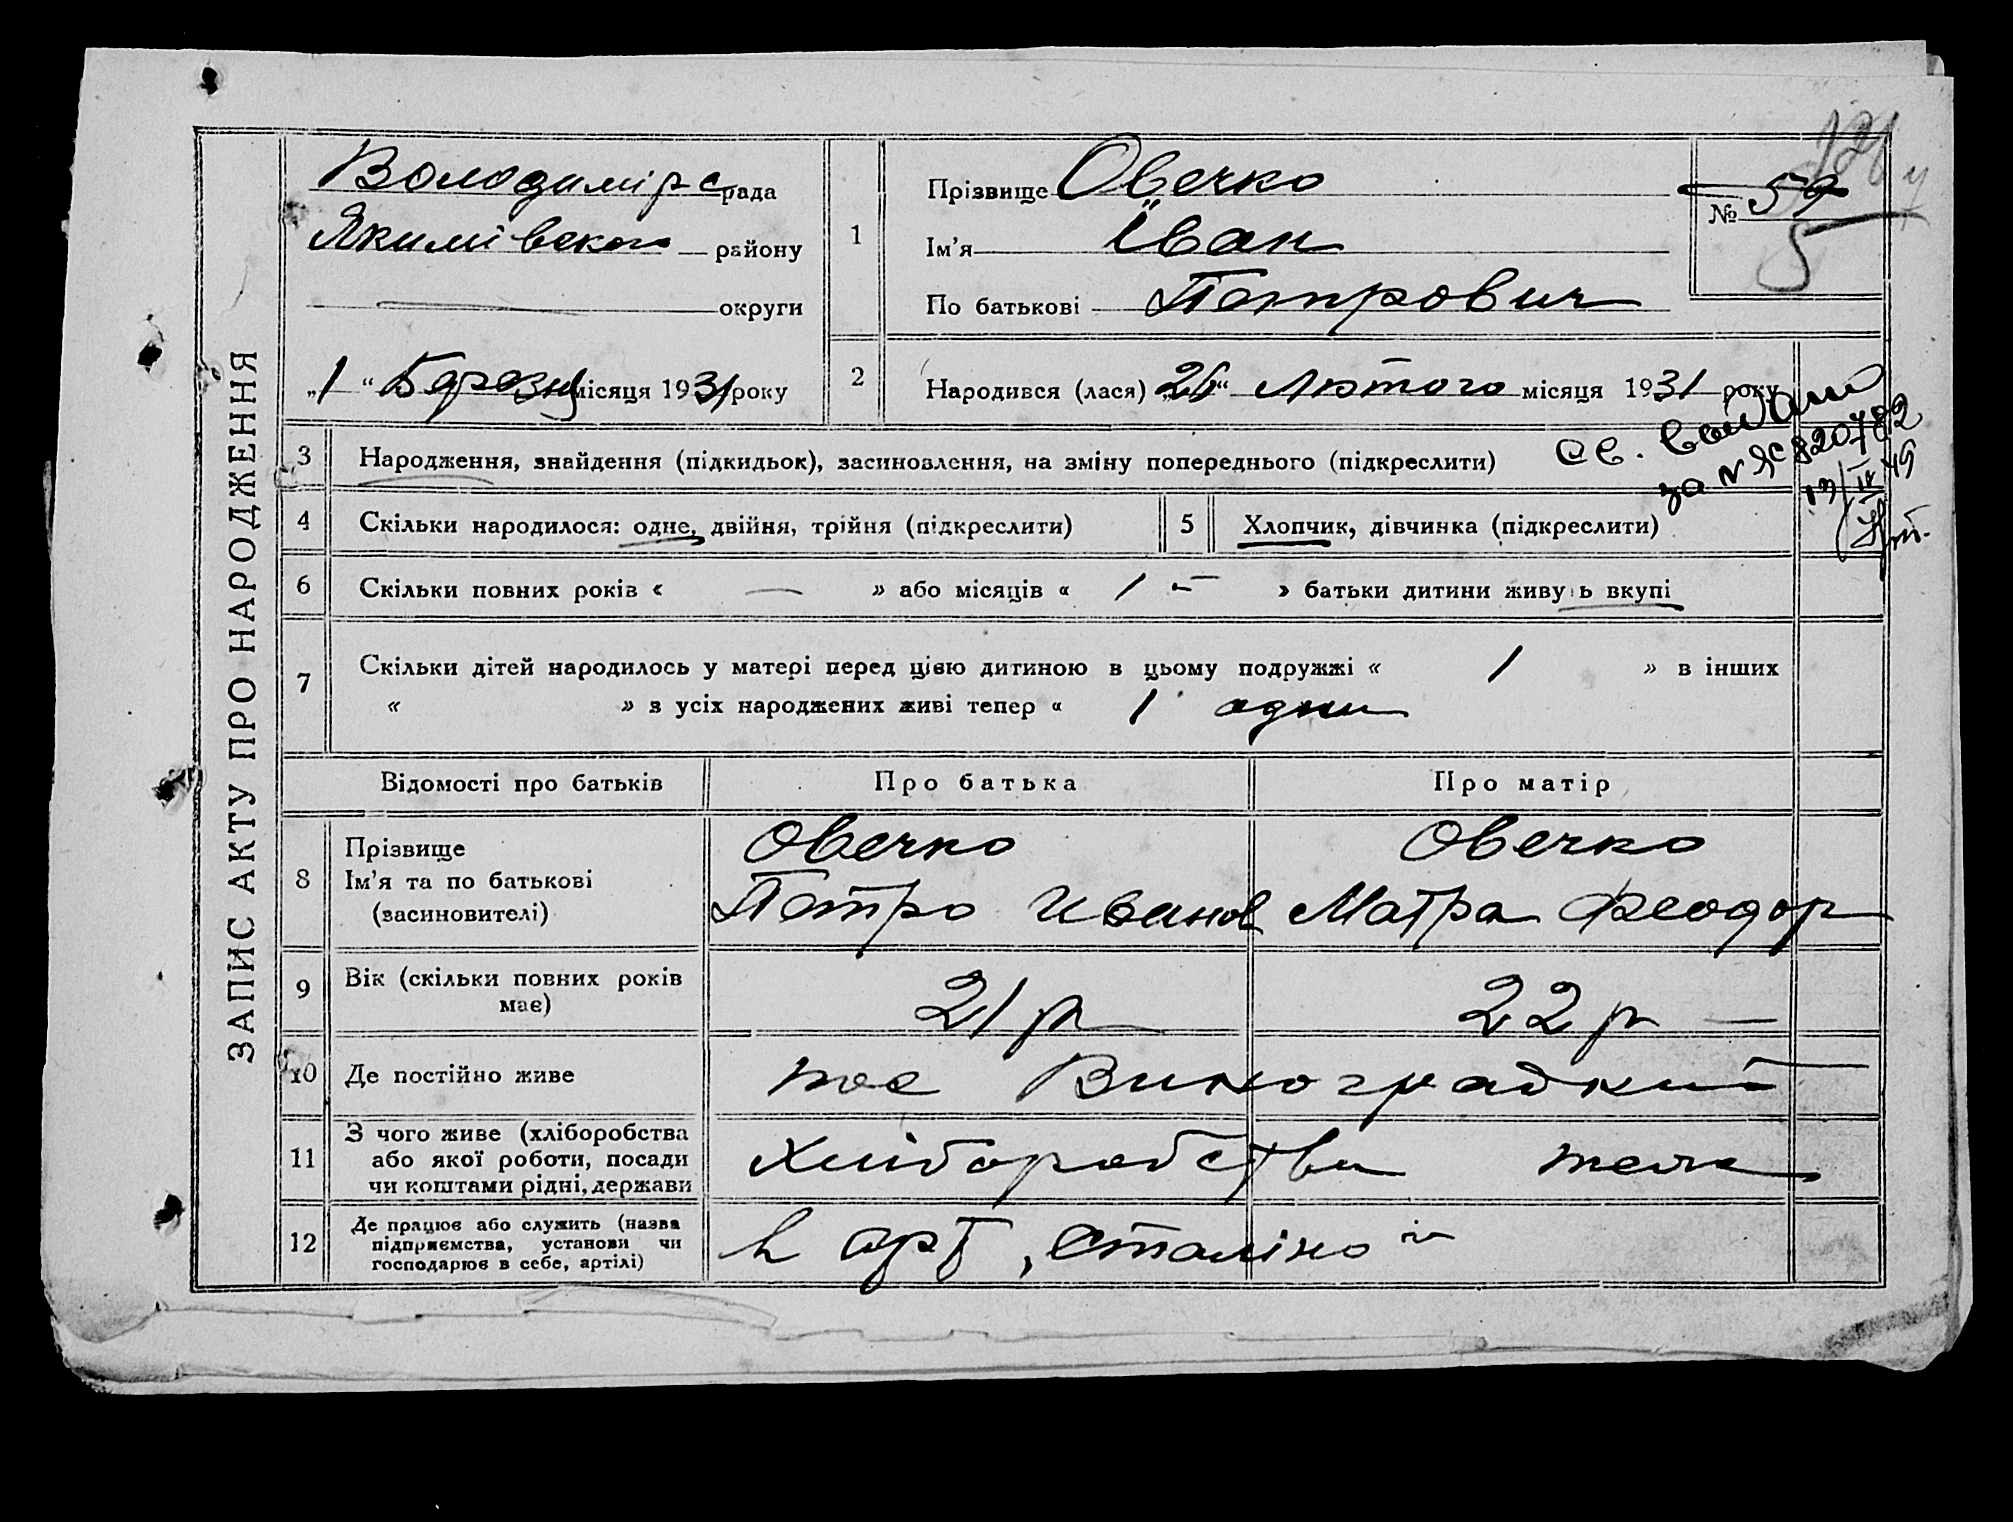 ЗАПИС АКТУ ПРО НАРОДЖЕННЯ
Володимірс рада
Якимівского району
округи
„1“ Березня місяця 1931 року
1
Прізвище Овечко
Ім’я Іван
По батькові Петрович
№ 59
5
2
Народився (лася) „26“ Лютого місяця 1931 року
3
Народження, знайдення (підкидьок), засиновлення, на зміну попереднього (підкреслити)
св.
за № ЯС 820782
13/IX 49
4
Скільки народилося: одне, двійня, трійня (підкреслити)
5
Хлопчик, дівчинка (підкреслити)
6
Скільки повних років « — » або місяців « 1 – » батьки дитини живуь вкупі
7
Скільки дітей народилось у матері перед цією дитиною в цьому подружжі « 1 » в інших
« » з усіх народжених живі тепер « 1 один
Відомості про батьків
Про батька
Про матір
8
Прізвище
Ім’я та по батькові
(засиновителі)
Овечко
Петро Иванов
Овечко
Мотра Феодор
9
Вік (скільки повних років
має)
21 р
22 р —
10
Де постійно живе
пос Виноградний
11
З чого живе (хліборобства
або якої роботи, посади
чи коштами рідні, держави
Хліборобства теж
12
Де працює або служить (назва
підприємства, установи чи
господарює в себе, артілі)
в арт „Сталіно“